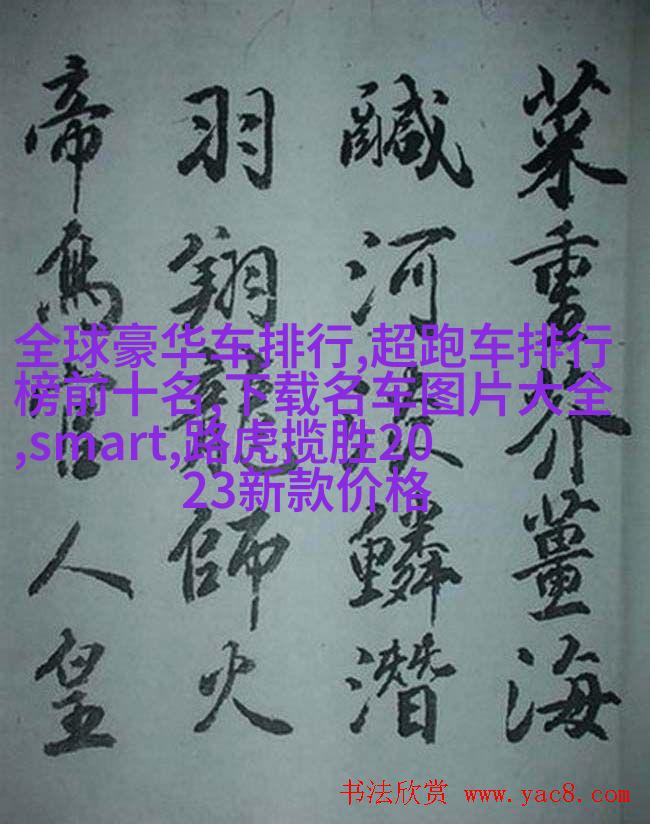 菜重芥薑海
鹹河淡鱗潛
羽翔龍師火
帝鳥官人皇
全球豪华车排行,超跑车排行
榜前十名,下载名车图片大全
,smart,路虎揽胜20
23新款价格
书法欣赏 www.yac8.com